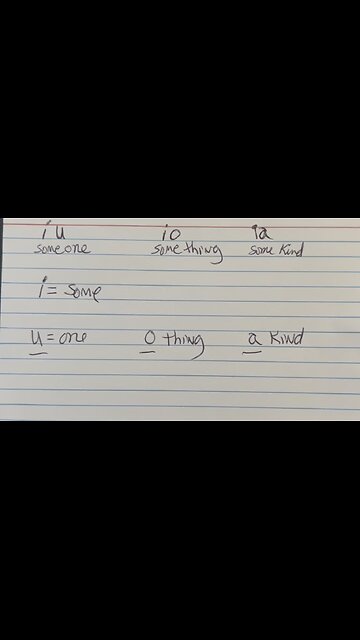 iu io ia
someone something some kind
i = some
u = one o thing a kind